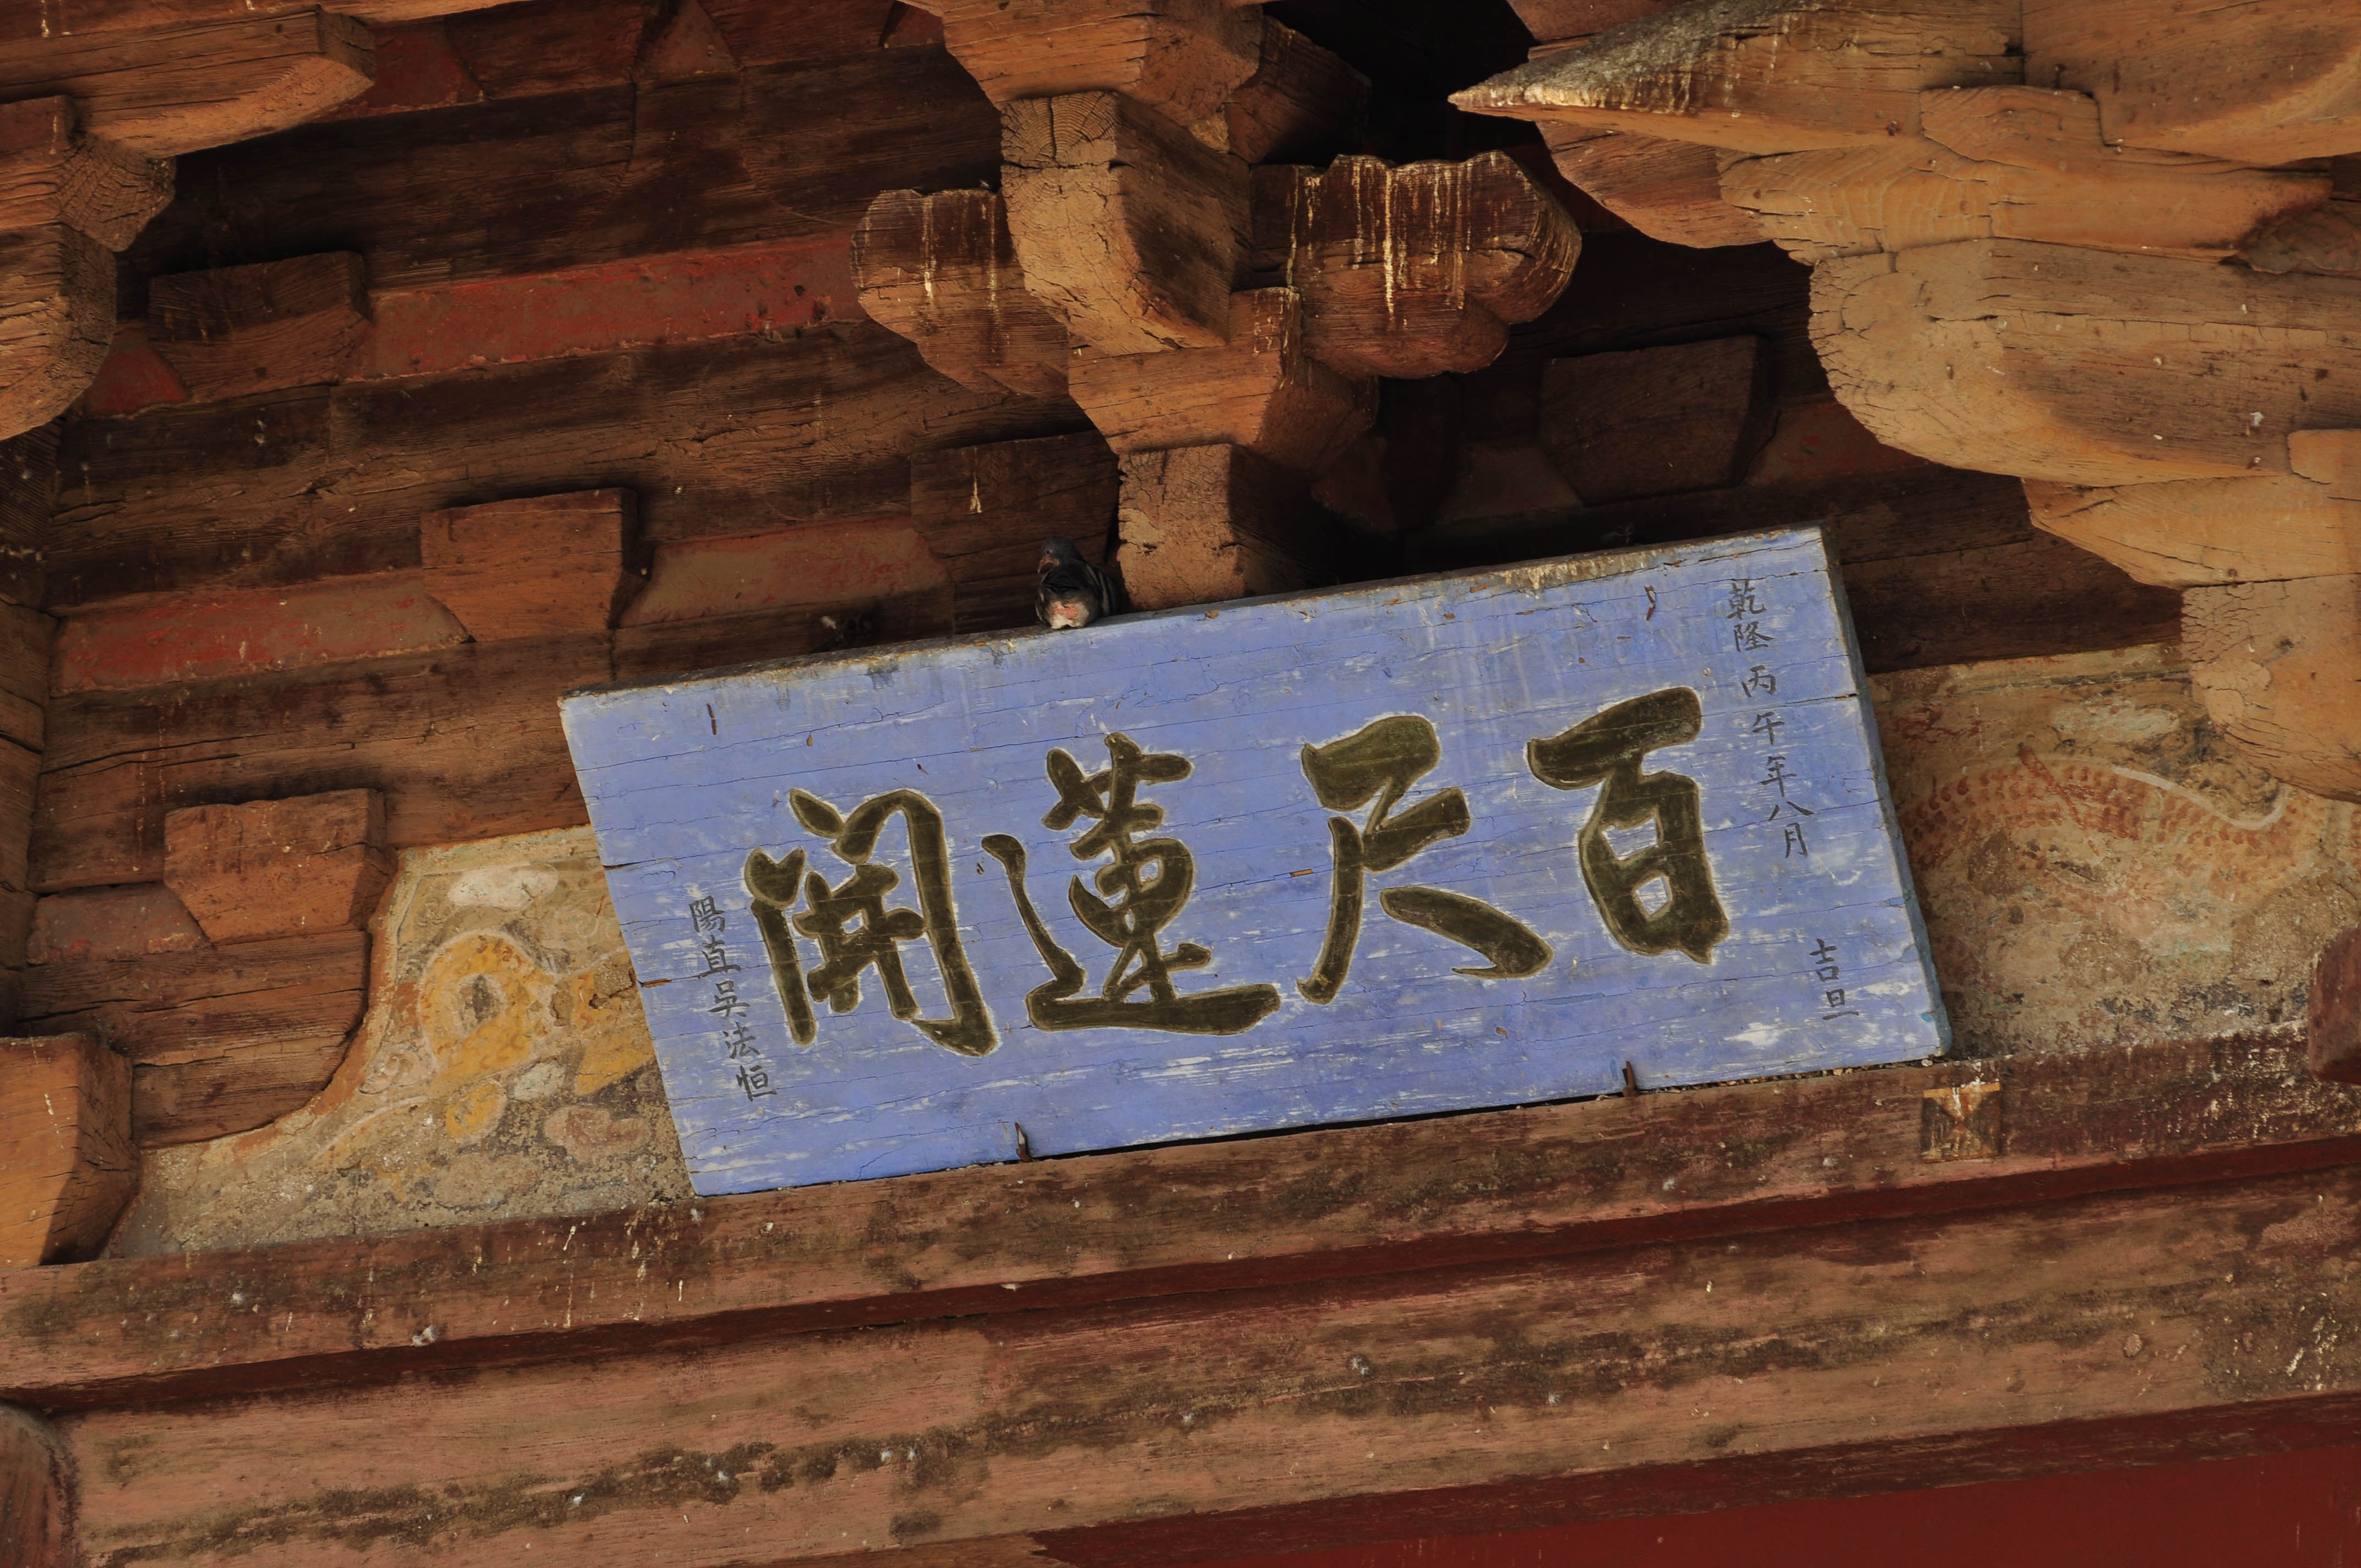 乾隆丙午年八月 吉旦
百尺蓮開
陽直吳法恒